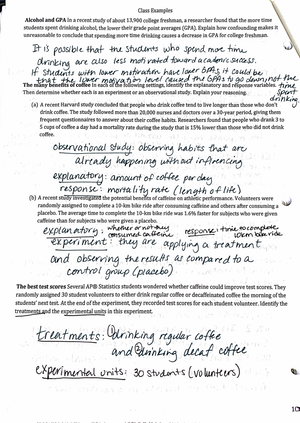 Class Examples
Alcohol and GPA In a recent study of about 13,900 college freshman, a researcher found that the more time
students spent drinking alcohol, the lower their grade point averages (GPA). Explain how confounding makes it
unreasonable to conclude that spending more time drinking causes a decrease in GPA for college freshman.
It is possible that the students who spend more time
drinking are also less motivated toward academic success.
If students with lower motivation have lower GPAs it could be
that the lower motivation level caused the GPAs to go down, not the
time
spent
drinking
The many benefits of coffee In each of the following settings, identify the explanatory and response variables.
Then determine whether each is an experiment or an observational study. Explain your reasoning.
(a) A recent Harvard study concluded that people who drink coffee tend to live longer than those who don't
drink coffee. The study followed more than 20,000 nurses and doctors over a 30-year period, giving them
frequent questionnaires to answer about their coffee habits. Researchers found that people who drank 3 to
5 cups of coffee a day had a mortality rate during the study that is 15% lower than those who did not drink
coffee.
observational study: observing habits that are
already happening without influencing
explanatory: amount of coffee per day
response: mortality rate (length of life)
(b) A recent study investigated the potential benefits of caffeine on athletic performance. Volunteers were
randomly assigned to complete a 10-km bike ride after consuming caffeine and others after consuming a
placebo. The average time to complete the 10-km bike ride was 1.6% faster for subjects who were given
caffeine than for subjects who were given a placebo.
explanatory: whether or not they consumed caffeine response: time to complete 10km bike ride
experiment: they are applying a treatment
and observing the results as compared to a
control group (placebo)
The best test scores Several AP® Statistics students wondered whether caffeine could improve test scores. They
randomly assigned 30 student volunteers to either drink regular coffee or decaffeinated coffee the morning of the
students' next test. At the end of the experiment, they recorded test scores for each student volunteer. Identify the
treatments and the experimental units in this experiment.
treatments: ① drinking regular coffee
and ② drinking decaf coffee
experimental units: 30 students (volunteers)
10